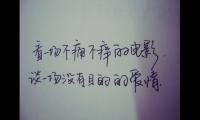 看一场不痛不痒的电影
谈一场没有目的的爱情